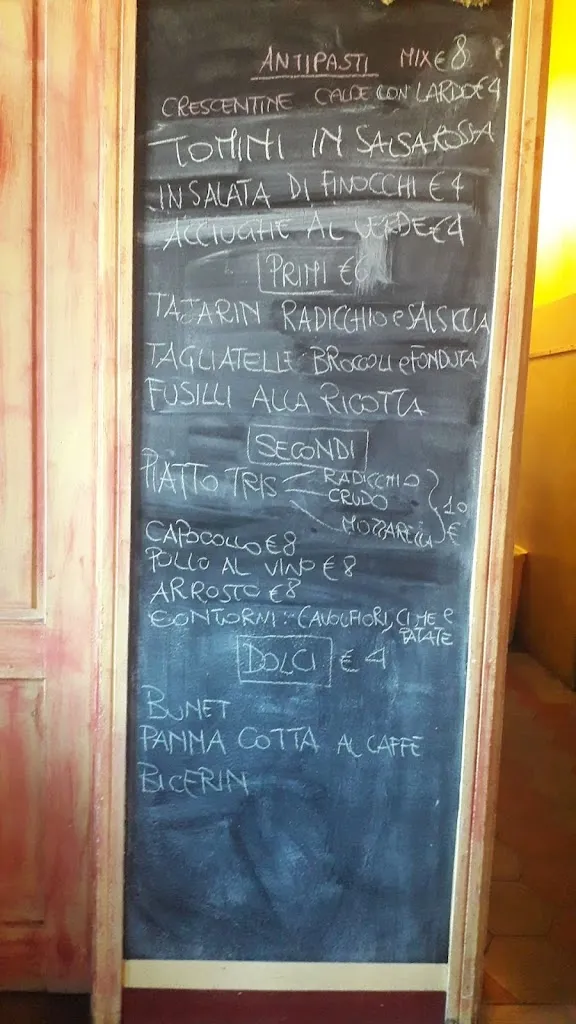 ANTIPASTI MIX € 8
CRESCENTINE CALDE CON LARDO € 4
TOMINI IN SALSA ROSSA
INSALATA DI FINOCCHI € 4
ACCIUGHE AL VERDE € 4
PRIMI € 6
TAJARIN RADICCHIO e SALSICCIA
TAGLIATELLE BROCCOLI e FONDUTA
FUSILLI ALLA RICOTTA
SECONDI
PIATTO TRIS RADICCHIO
CRUDO
MOZZARELLA
10 €
CAPOCOLLO € 8
POLLO AL VINO € 8
ARROSTO € 8
CONTORNI: CAVOLFIORI, CIME e
PATATE
DOLCI € 4
BUNET
PANNA COTTA AL CAFFÈ
BICERIN